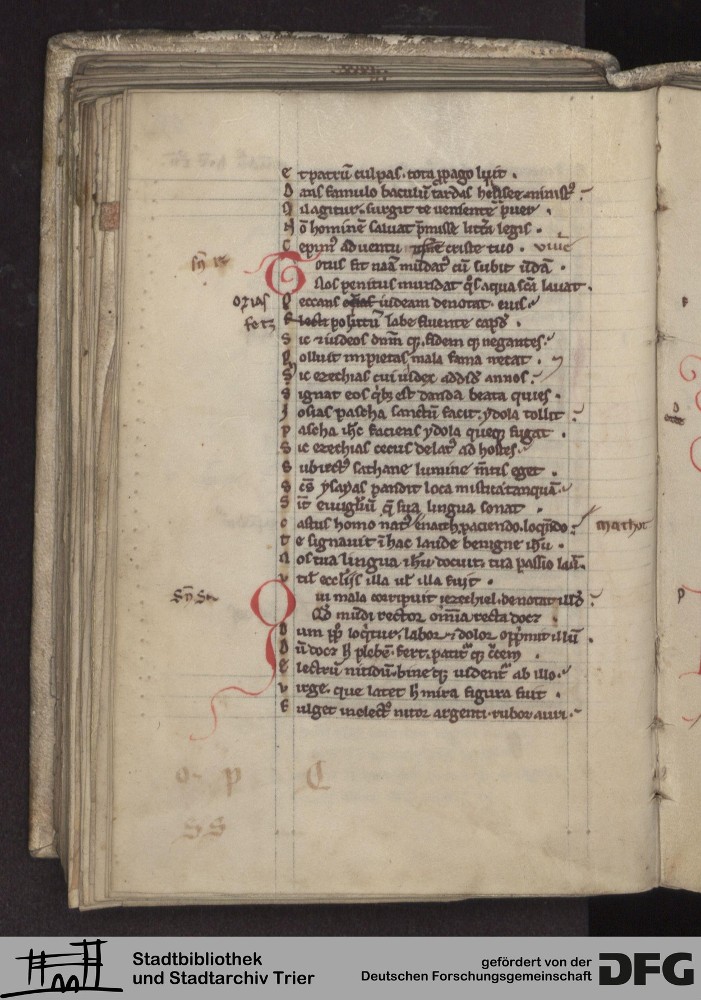 Et patrũ culpas. tota ꝓpago luit .
Dans famulo baculũ tardas helisee ministˀ
Nil agitur. surgit te veniente puer .
Nõ hominẽ saluat p̃misse littera legis .
Cepimˀ aduentu criste tuo . viuẽ
Totus fit naã mũdatˀ cũ subit ũdã .
Nos penitus mundat q̃s aqua sc̃i lauat .
ozias
Peccans iudeam denotat eius
fetꝫ
pollutũ labe fluente capd̾ .
Sic ⁊ iudeos dn̄m qꝫ fidem qꝫ negantes
Polluit impietas mala fama necat .
Sic ezechias cui iudex addid̾ annos
Signat eos q̃bꝫ est danda beata quies .
Iosias pascha sanctũ facit. ydola tollit
Pascha ih̃c faciens ydola queqꝫ fugat .
Sic ezechias cecus delatˀ ad hostes
Subiectˀ sathane lumine m̃tis eget .
Scs̃ ysayas pandit loca mistica tanquã
Sit ewãgl̃iũ q̃ sua lingua sonat .
Castus homo natˀ paciendo. loq̃ndo
Te signauit ĩ hac laude benigne ih̃u .
Nos tua lingua ih̃u docuit. tua passio lauit
Vtil̾ eccl̾ijs illa ul̾ illa fuit .
Qui mala corripuit iezechiel. denotat illũ
Qđ mũdi rector om̃ia recta docꝫ
Dum loq̃tur. labor ⁊ dolor opp̃mit illũ
Dũ docꝫ h̾ plebẽ. fert. patitˀ qꝫ crucem
Electrũ nitidũ. bine qꝫ uidentˀ ab illo
Virge. que latet h̾ mira figura fuit .
Fulget in electˀ nitor argenti. rubor auri
o p C
SS
Stadtbibliothek
und Stadtarchiv Trier
gefördert von der
Deutschen Forschungsgemeinschaft
DFG